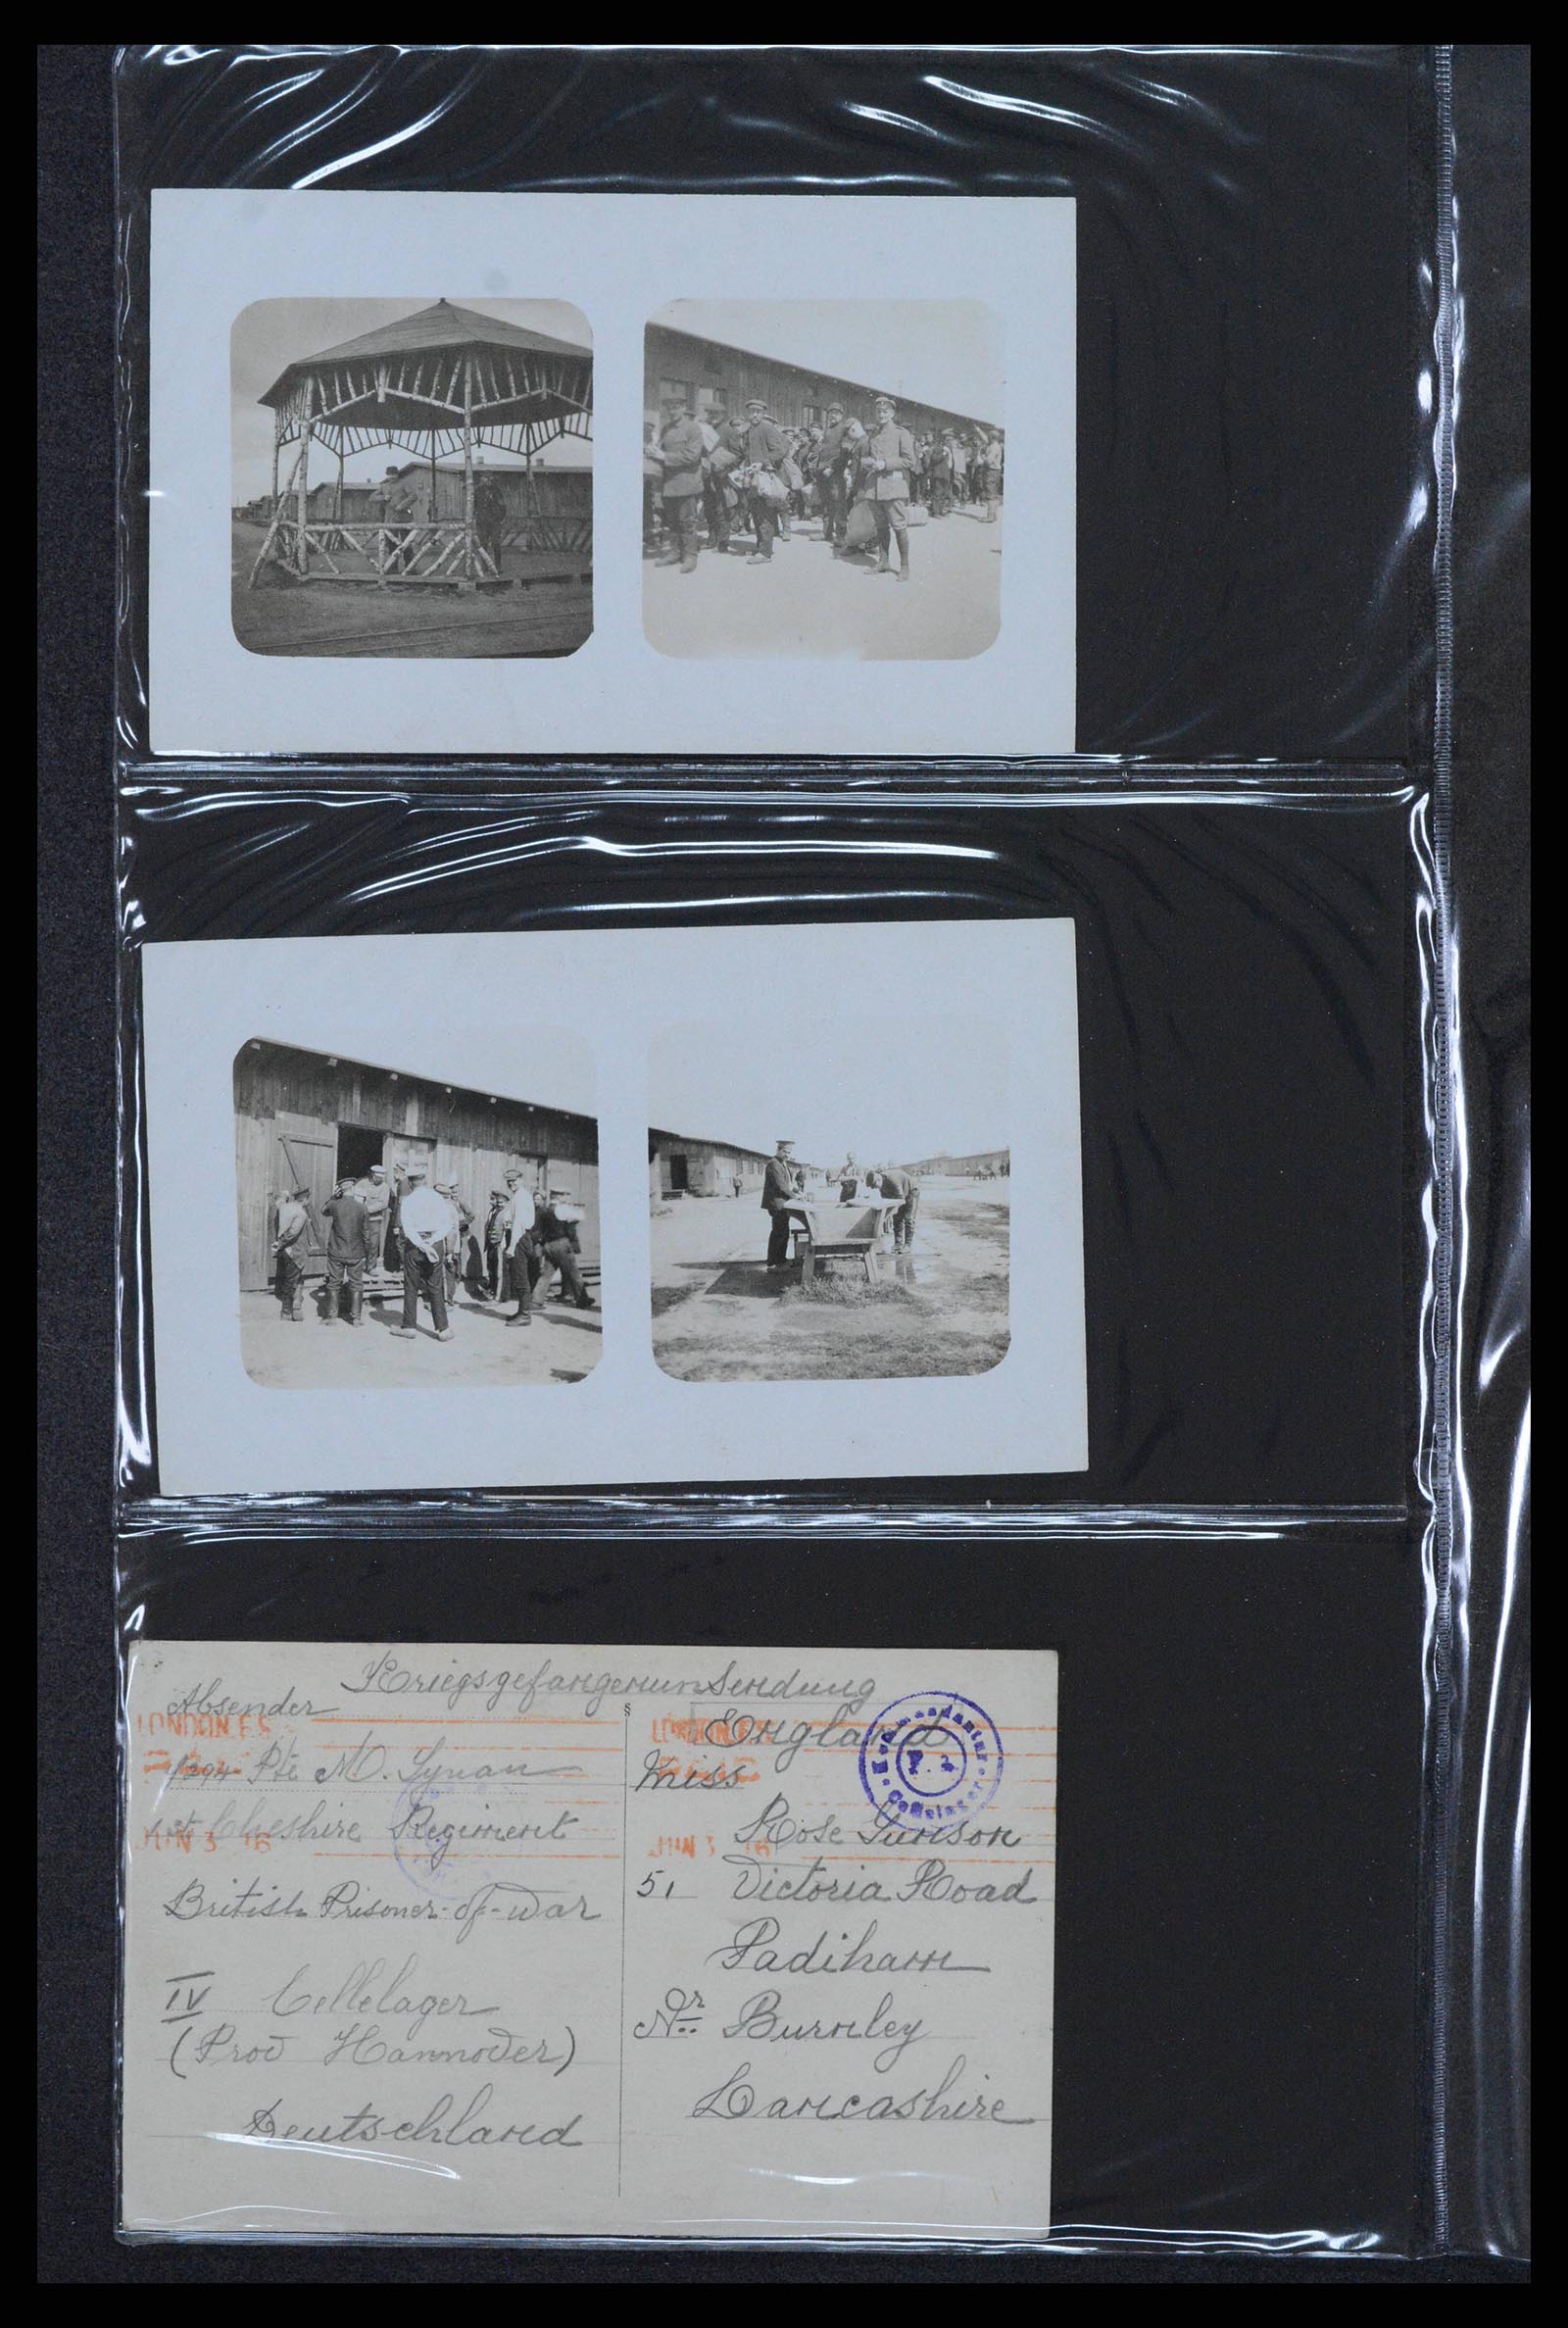 Kriegsgefangenen Sendung
Absender
LONDON F.S.
PAID
Pte M. Synan
1st Cheshire Regiment
JUN 3 16
British Prisoner-of-war
IV Cellelager
(Prov Hannover)
Deutschland
§
England
LONDON F.S.
PAID
Miss
Rose Tunson
JUN 3 16
51 Victoria Road
Padiham
Nr Burnley
Lancashire
Kommandantur
Cellelager